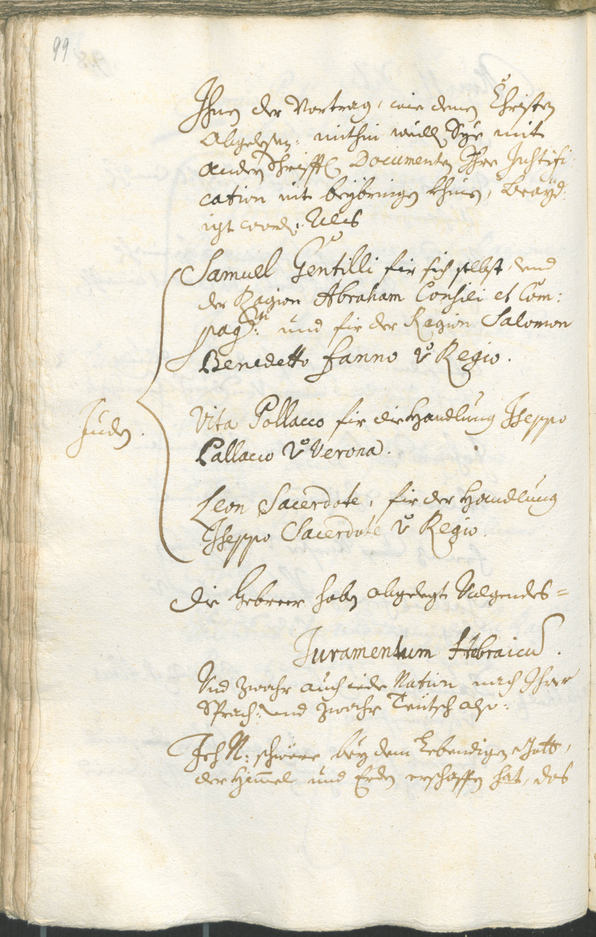 99
Ihnen der Vortrag, wie denen Christen
Abgelesen, mithin weill Sye mit
anderen Schrifftl: Documenten Ihre Justifi-
cation nit beybringen khönen,
Als
Samuel Gentilli für sich selbst, und
der Ragion Abraham Consili et Com:
pag: und für der Ragion Salomon
Benedetto Fanno v Regio.
Juden.
Vita Pollacco für die Handlung Iseppo
Pallacco v Verona.
Leon Sacerdote, für der Handlung
Iseppo Sacerdote v Regio.
Die Hebreer haben abgelegt Volgendes=
Juramentum Hebraicum.
Und zwahr auch iede Nation nach Ihrer
Sprach: und zwahr Teütsch also:
Ich N: schwere, bey dem Lebendigen Gott,
der Himmel und Erden erschaffen hat, das